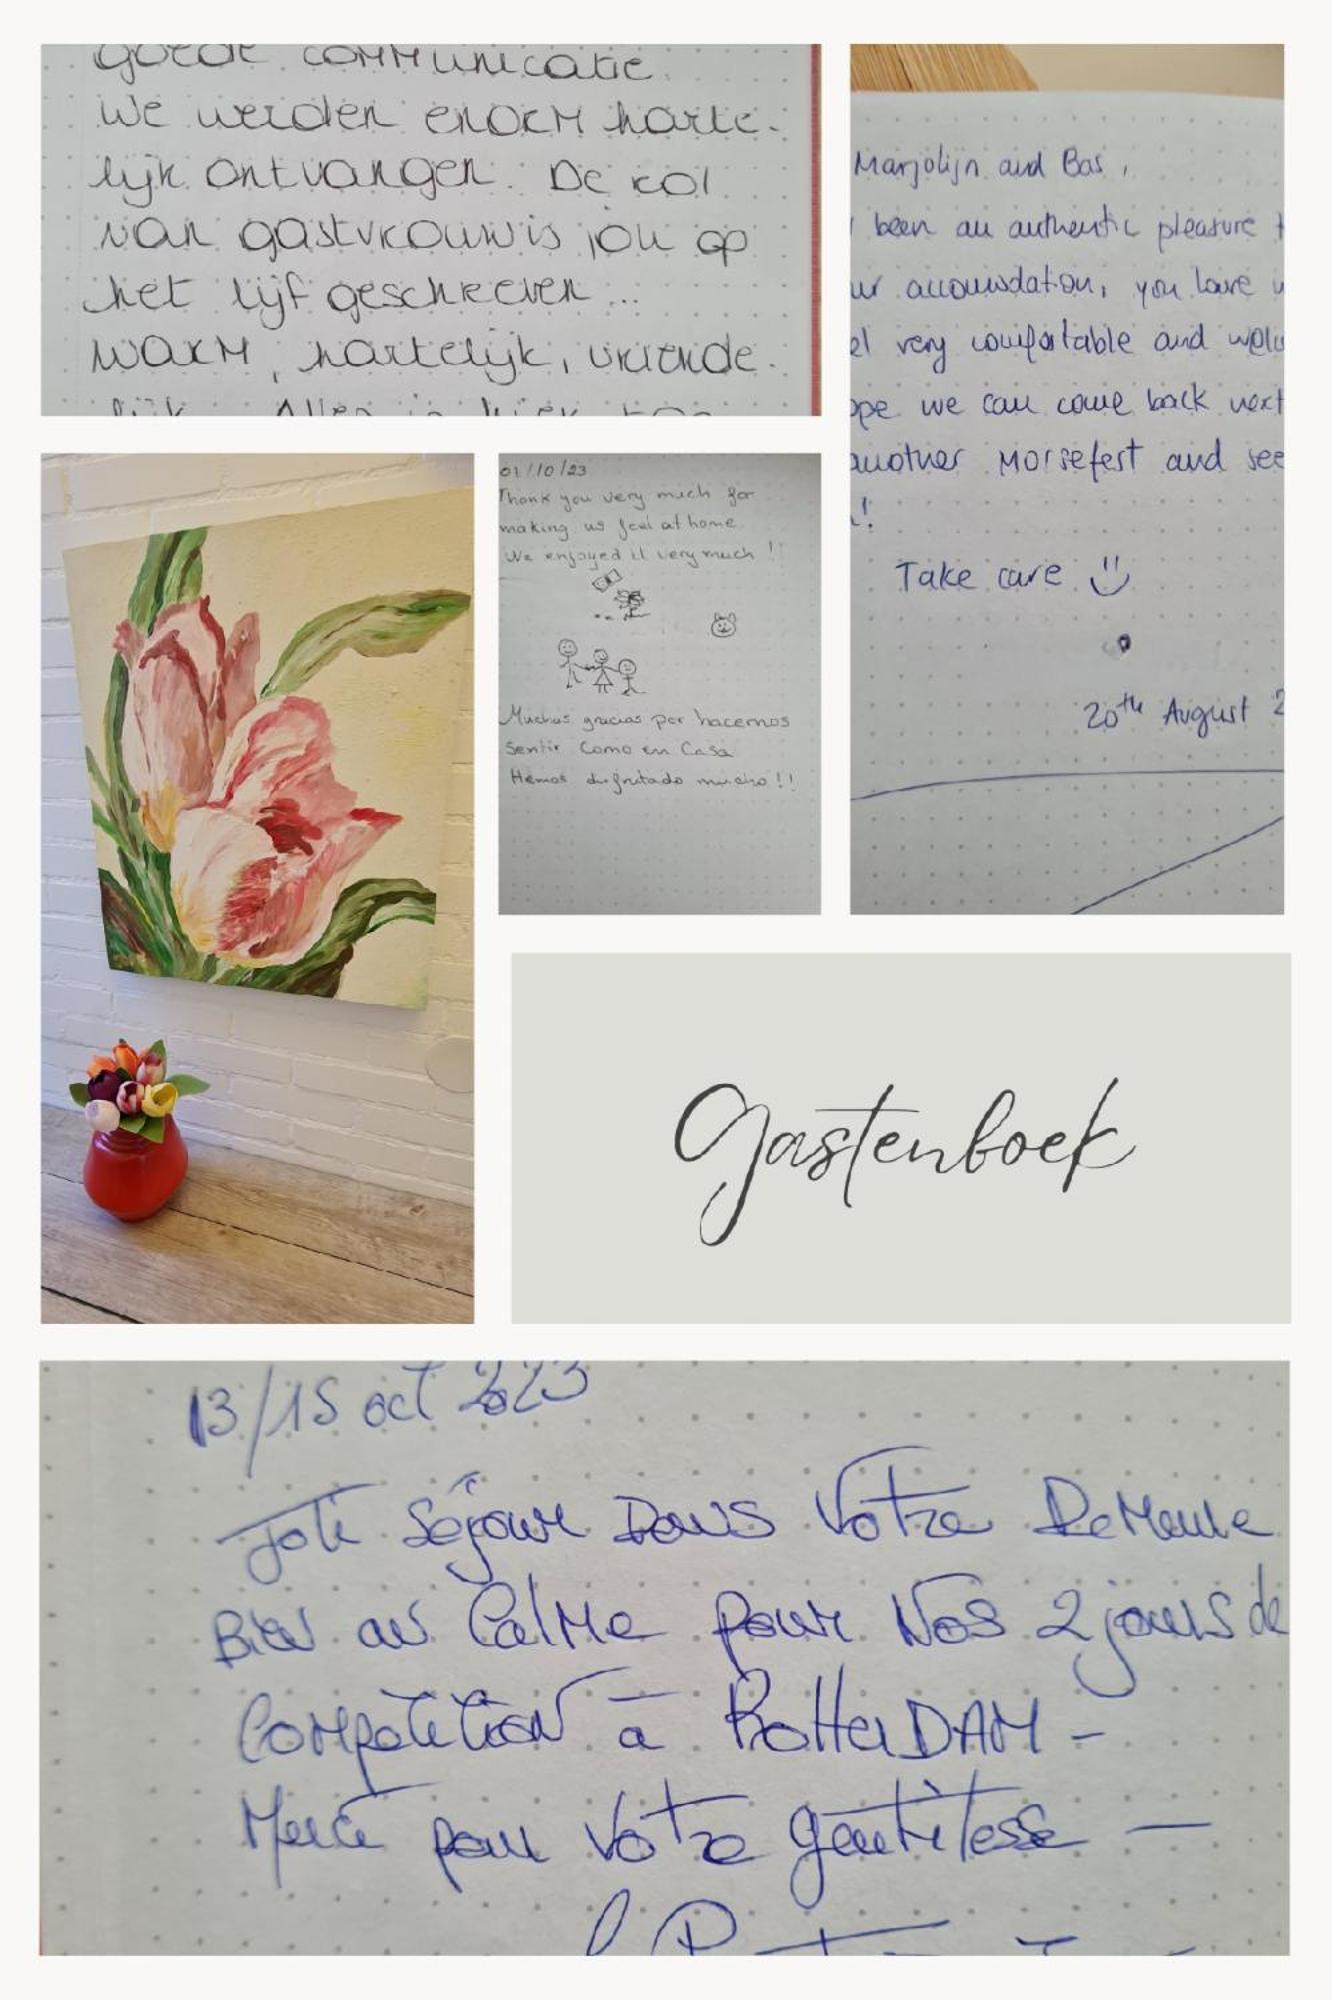 goede communicatie.
We werden enorm harte-
lijk ontvangen. De rol
van gastvrouw is jou op
het lijf geschreven ...
warm, hartelijk, vriende-
lijk. Alles is hier
Marjolijn and Bas,
been an authentic pleasure t
ur accouwdation, you have
el very comfortable and welc
ope we can come back next
another Morsefest and see
!
Take care
20th August 2
01/10/23
Thank you very much for
making us feel at home.
We enjoyed it very much!
Muchas gracias por hacernos
sentir como en Casa
Hemos disfrutado mucho!!
Gastenboek
13/15 oct 2023
Joli séjour Dans Votre Demeure
Bien au Calme pour Nos 2 jours de
Compétition à RotterDAM -
Merci pour Votre gentilesse -